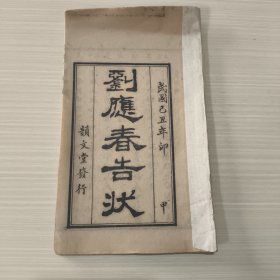 民國己丑年印
甲
劉應春告狀
韻文堂發行